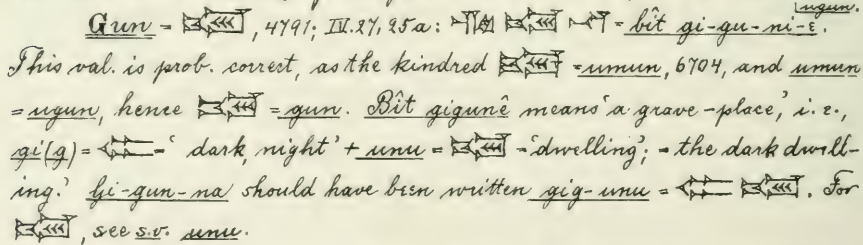 [ugun.
Gun = , 4791; IV.27, 25a: = bît gi-gu-ni-e.
This val. is prob. correct, as the kindred = umun, 6704, and umun
= ugun, hence = gun. Bît gigunê means 'a grave-place,' i.e.,
gi(g) = = 'dark, night' + unu = = 'dwelling'; = the dark dwell-
ing.' Gi-gun-na should have been written gig-unu = . For
, see s.v. unu.